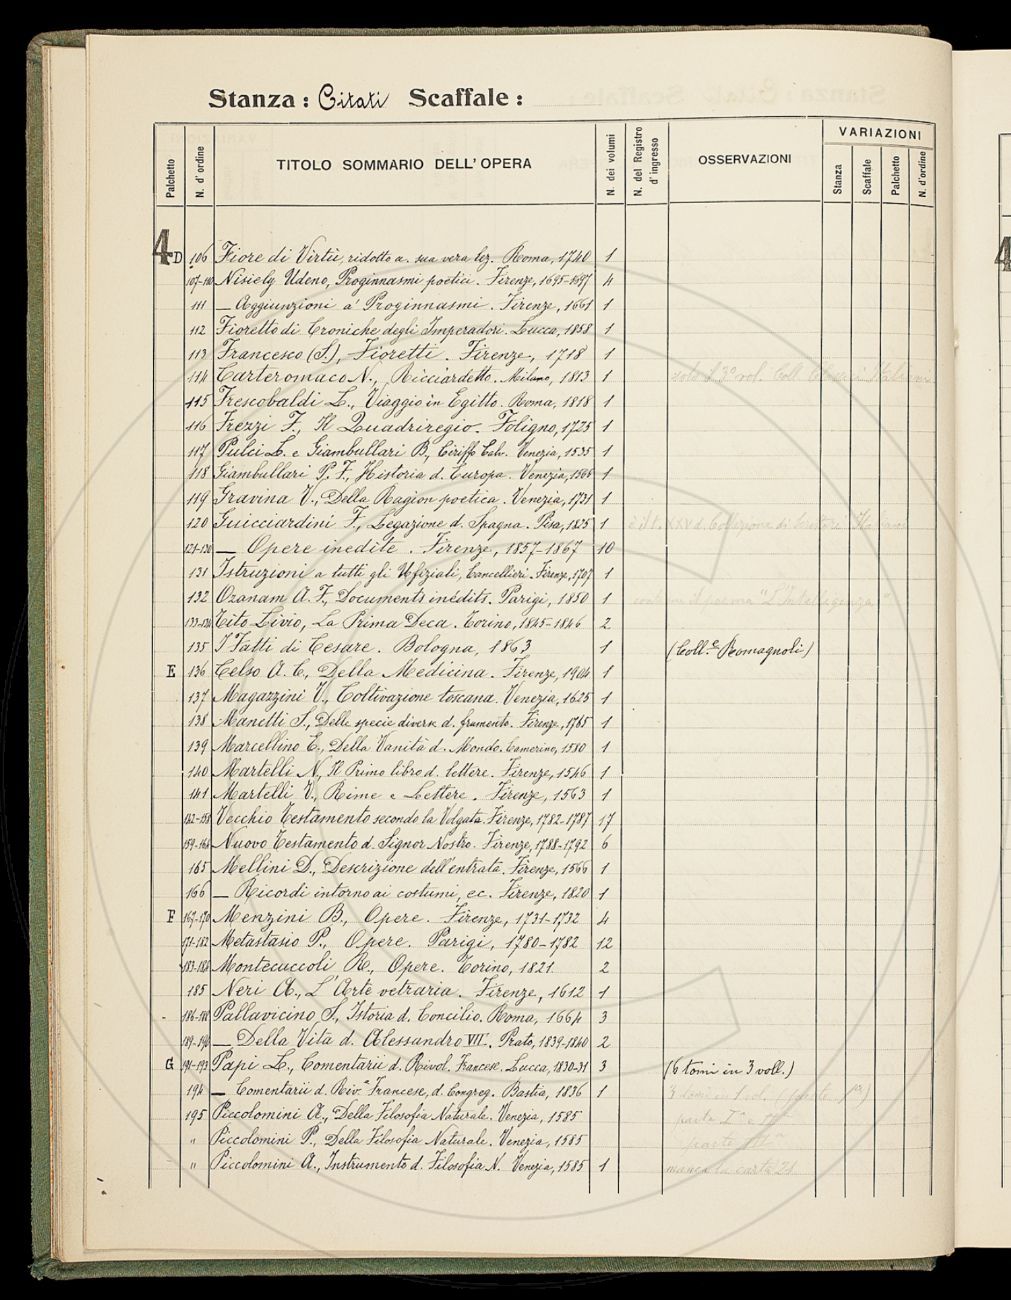 Stanza: Citati Scaffale:
Palchetto N. d' ordine TITOLO SOMMARIO DELL' OPERA N. dei volumi N. del Registro d' ingresso OSSERVAZIONI VARIAZIONI
Stanza Scaffale Palchetto N. d'ordine
4 D 106 Fiore di Virtù, ridotto a. sua vera lez. Roma, 1740 1
107-110 Nisiely Udeno, Proginnasmi poetici. Firenze, 1695-1697 4
111 — Aggiunzioni a' Proginnasmi. Firenze, 1661 1
112 Fioretto di Croniche degli Imperadori. Lucca, 1858 1
113 Francesco (S.), Fioretti. Firenze, 1718 1
114 Carteromaco N., Ricciardetto. Milano, 1813 1 solo il 3° vol. Coll. Classici Italiani
115 Frescobaldi L., Viaggio in Egitto. Roma, 1818 1
116 Frezzi F., Il Quadriregio. Foligno, 1725 1
117 Pulci L. e Giambullari B., Ciriffo Calv. Venezia, 1535 1
118 Giambullari P. F., Historia d. Europa. Venezia, 1566 1
119 Gravina V., Della Ragion poetica. Venezia, 1731 1
120 Guicciardini F., Legazione d. Spagna. Pisa, 1825 1 è il t. XXV d. Collezione di Scrittori Italiani
121-130 — Opere inedite. Firenze, 1857-1867 10
131 Istruzioni a tutti gli Uffiziali, Cancellieri. Firenze, 1707 1
132 Ozanam A. F., Documents inédits. Parigi, 1850 1 contiene il poema "L'Intelligenza"
133-134 Tito Livio, La Prima Deca. Torino, 1845-1846 2
135 I Fatti di Cesare. Bologna, 1863 1 (Coll.e Romagnoli)
E 136 Celso A. C., Della Medicina. Firenze, 1904 1
137 Magazzini V., Coltivazione toscana. Venezia, 1625 1
138 Manetti S., Delle specie diverse d. frumento. Firenze, 1765 1
139 Marcellino E., Della Vanità d. Mondo. Camerino, 1580 1
140 Martelli N., Il Primo libro d. lettere. Firenze, 1546 1
141 Martelli V., Rime e Lettere. Firenze, 1563 1
142-158 Vecchio Testamento secondo la Volgata. Firenze, 1782-1787 17
159-164 Nuovo Testamento d. Signor Nostro. Firenze, 1788-1792 6
165 Mellini D., Descrizione dell'entrata. Firenze, 1566 1
166 — Ricordi intorno ai costumi, ec. Firenze, 1820 1
F 167-170 Menzini B., Opere. Firenze, 1731-1732 4
171-182 Metastasio P., Opere. Parigi, 1780-1782 12
183-184 Montecuccoli R., Opere. Torino, 1821 2
185 Neri A., L'Arte vetraria. Firenze, 1612 1
186-188 Pallavicino S., Istoria d. Concilio. Roma, 1664 3
189-190 — Della Vita d. Alessandro VII. Prato, 1839-1840 2
G 191-193 Papi L., Comentarii d. Rivol. Francese. Lucca, 1830-31 3 (6 tomi in 3 voll.)
194 — Comentarii d. Riv.e Francese, d. Congreg. Bastia, 1836 1 3 tomi in 1 vol.
195 Piccolomini A., Della Filosofia Naturale. Venezia, 1585 parte Ia e
" Piccolomini P., Della Filosofia Naturale. Venezia, 1585 parte IIIa
" Piccolomini A., Instrumento d. Filosofia N. Venezia, 1585 1 manca la carta 21
4